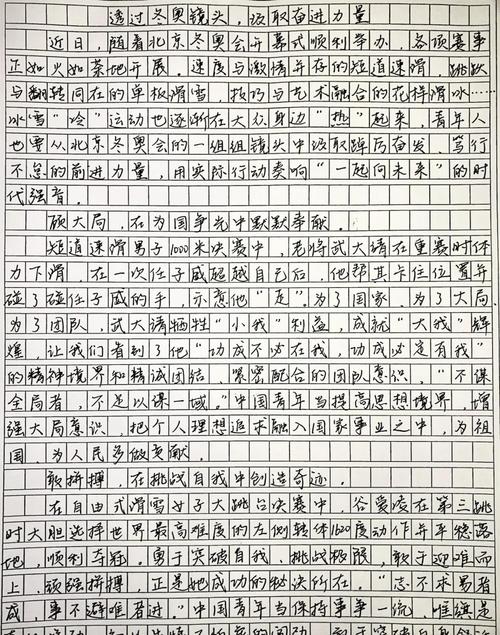 透过冬奥镜头，汲取奋进力量
近日，随着北京冬奥会开幕式顺利举办，各项赛事
正如火如荼地开展。速度与激情并存的短道速滑，跳跃
与翻转同在的单板滑雪，技巧与艺术融合的花样滑冰……
冰雪“冷”运动也逐渐在大众身边“热”起来，青年人
也要从北京冬奥会的一组组镜头中汲取踔厉奋发、笃行
不怠的前进力量，用实际行动奏响“一起向未来”的时
代强音。
顾大局，在为国争光中默默奉献。
短道速滑男子1000米决赛中，老将武大靖在重赛时体
力下滑，在一次任子威超越自己后，他帮其卡住位置并
碰了碰任子威的手，示意他“走”。为了国家，为了大局
为了团队，武大靖牺牲“小我”利益，成就“大我”辉
煌，让我们看到了他“功成不必在我，功成必定有我”
的精神境界和精诚团结、紧密配合的团队意识。“不谋
全局者，不足以谋一域。”中国青年当提高思想境界，增
强大局意识，把个人理想追求融入国家事业之中，为祖
国、为人民多做贡献。
敢拼搏，在挑战自我中创造奇迹。
在自由式滑雪女子大跳台决赛中，谷爱凌在第三跳
时大胆选择世界最高难度的左侧转体1620度动作并平稳落
地，顺利夺冠。勇于突破自我、挑战极限，敢于迎难而
上、顽强拼搏，正是她成功的秘诀所在。“志不求易者
成，事不避难者进。”中国青年当保持事争一流、唯旗是